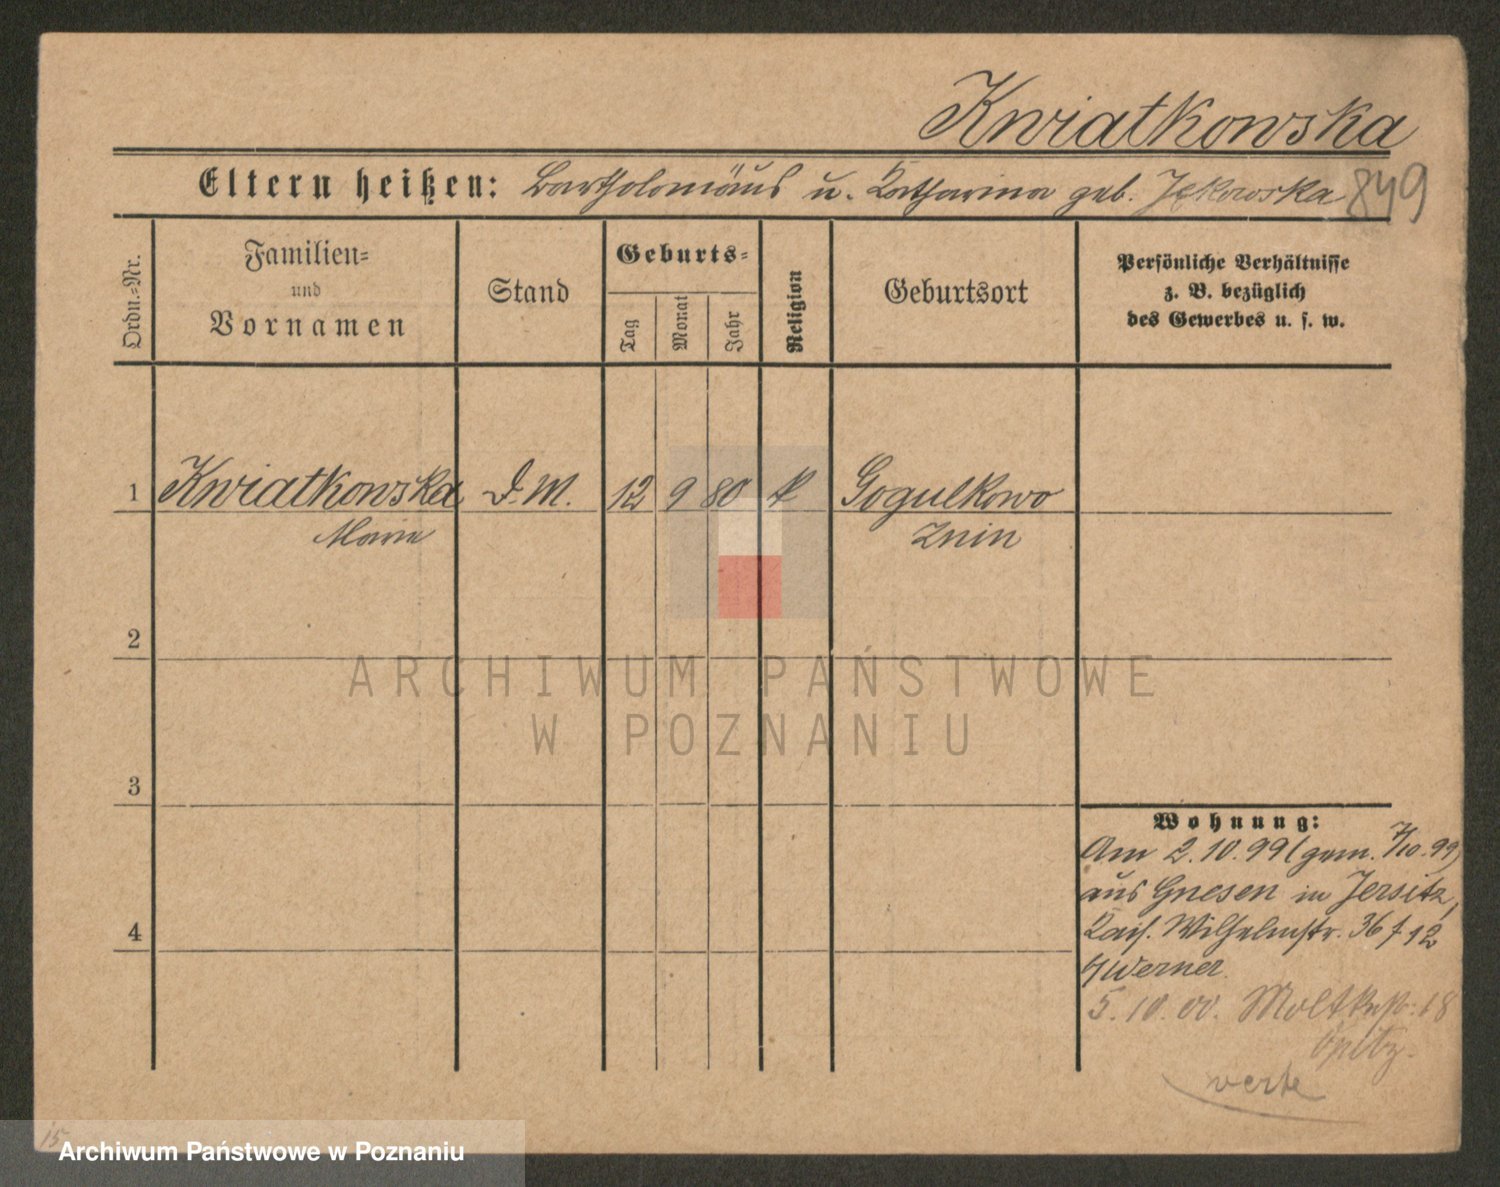 Kwiatkowska
Eltern heißen: Bartholomäus u. Katharina geb. Jękowska 849
Ordn.-Nr.
Familien-
und
Vornamen
Stand
Geburts-
Tag
Monat
Jahr
Religion
Geburtsort
Persönliche Verhältnisse
z. B. bezüglich
des Gewerbes u. s. w.
1 Kwiatkowska D. M. 12 9 80 k Gogulkowo
Marie Znin
2
ARCHIWUM PAŃSTWOWE
W POZNANIU
3
Wohnung:
Am 2.10.99 (gem. 7/10.99)
aus Gnesen in Jersitz,
4
Kais. Wilhelmstr. 36 f 12
b/ Werner
5.10.00. Moltkestr. 18
Opitz.
verte
15
Archiwum Państwowe w Poznaniu